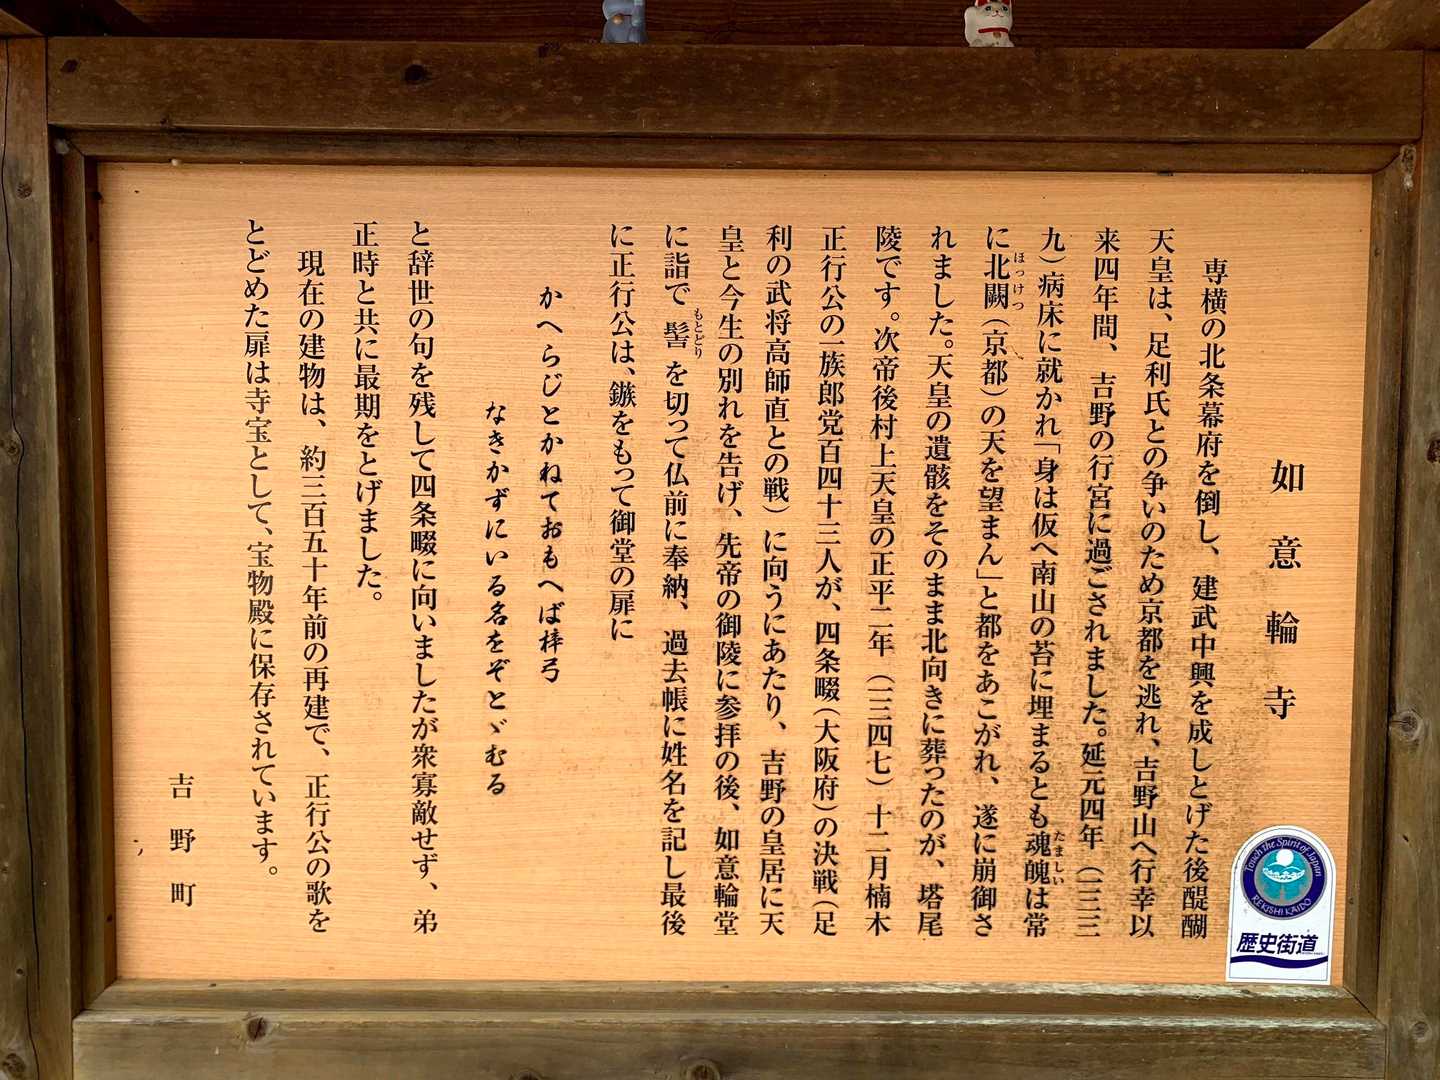 如意輪寺
専横の北条幕府を倒し、建武中興を成しとげた後醍醐
天皇は、足利氏との争いのため京都を逃れ、吉野山へ行幸以
来四年間、吉野の行宮に過ごされました。延元四年（一三三
九）病床に就かれ「身は仮へ南山の苔に埋まるとも魂魄は常
たましい
に北闕（京都）の天を望まん」と都をあこがれ、遂に崩御さ
ほっけつ
れました。天皇の遺骸をそのまま北向きに葬ったのが、塔尾
陵です。次帝後村上天皇の正平二年（一三四七）十二月楠木
正行公の一族郎党百四十三人が、四条畷（大阪府）の決戦（足
利の武将高師直との戦）に向うにあたり、吉野の皇居に天
皇と今生の別れを告げ、先帝の御陵に参拝の後、如意輪堂
に詣で髻を切って仏前に奉納、過去帳に姓名を記し最後
もとどり
に正行公は、鏃をもって御堂の扉に
かへらじとかねておもへば梓弓
なきかずにいる名をぞとゞむる
と辞世の句を残して四条畷に向いましたが衆寡敵せず、弟
正時と共に最期をとげました。
現在の建物は、約三百五十年前の再建で、正行公の歌を
とどめた扉は寺宝として、宝物殿に保存されています。
吉野町
Touch the Spirit of Japan
REKISHI KAIDO
歴史街道